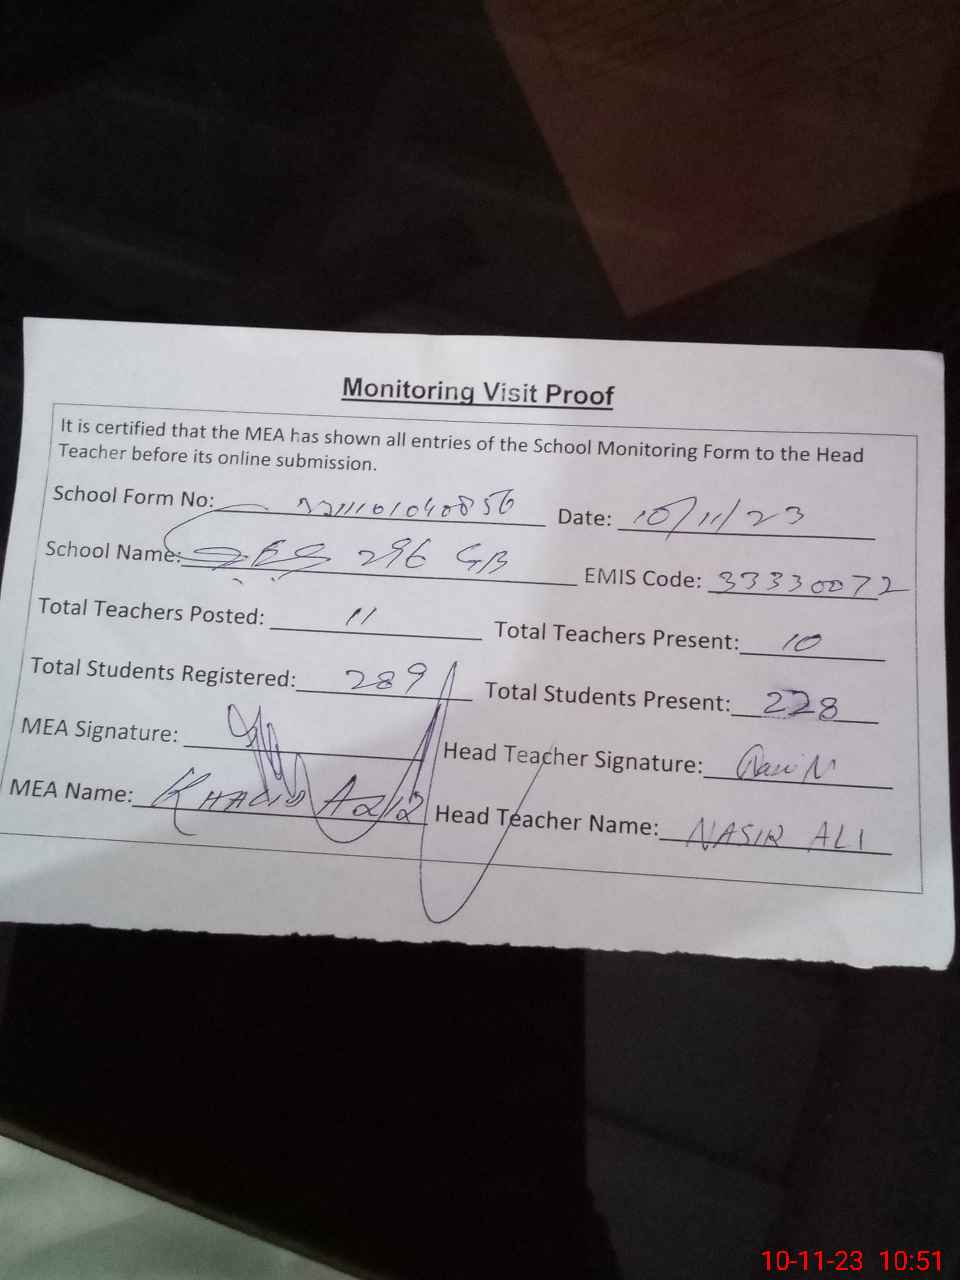 Monitoring Visit Proof
It is certified that the MEA has shown all entries of the School Monitoring Form to the Head
Teacher before its online submission.
School Form No: Date: 10/11/23
School Name: 296 GB EMIS Code: 33330072
Total Teachers Posted: 11 Total Teachers Present: 10
Total Students Registered: 289 Total Students Present: 228
MEA Signature: Head Teacher Signature:
MEA Name: KHALID AZIZ Head Teacher Name: NASIR ALI
10-11-23 10:51